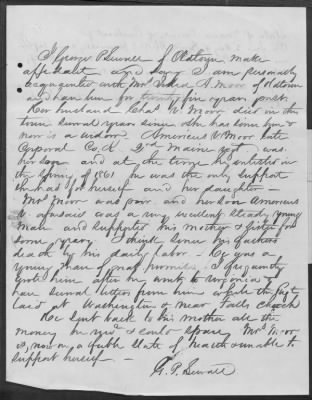 I George P Sewall of Oldtown make
affidavit and say I am personally
acquainted with Mrs A. Moor of Oldtown
and have been for twenty five years past.
Her husband Chas V. Moor died in this
town several years since she has been &
now is a widow. Americus V Moor late
Corporal Co. K 2nd Maine regt was
her son and at the time he enlisted in
the Spring of 1861 he was the only support
she has for herself and her daughter —
Mrs Moor was poor and her son Americus
V. aforesaid was a very excellent steady young
man and supported his mother & sister for
some years I think since his father's
death by his daily labor — He was a
young man of great promise. I frequently
wrote him after he went to Virginia &
have several letters from him while the Regt
laid at Washington & near Falls Church
He sent back to his mother all the
money he & could spare Mrs Moor
is now in a feeble state of health & unable to
support herself —
G. P. Sewall